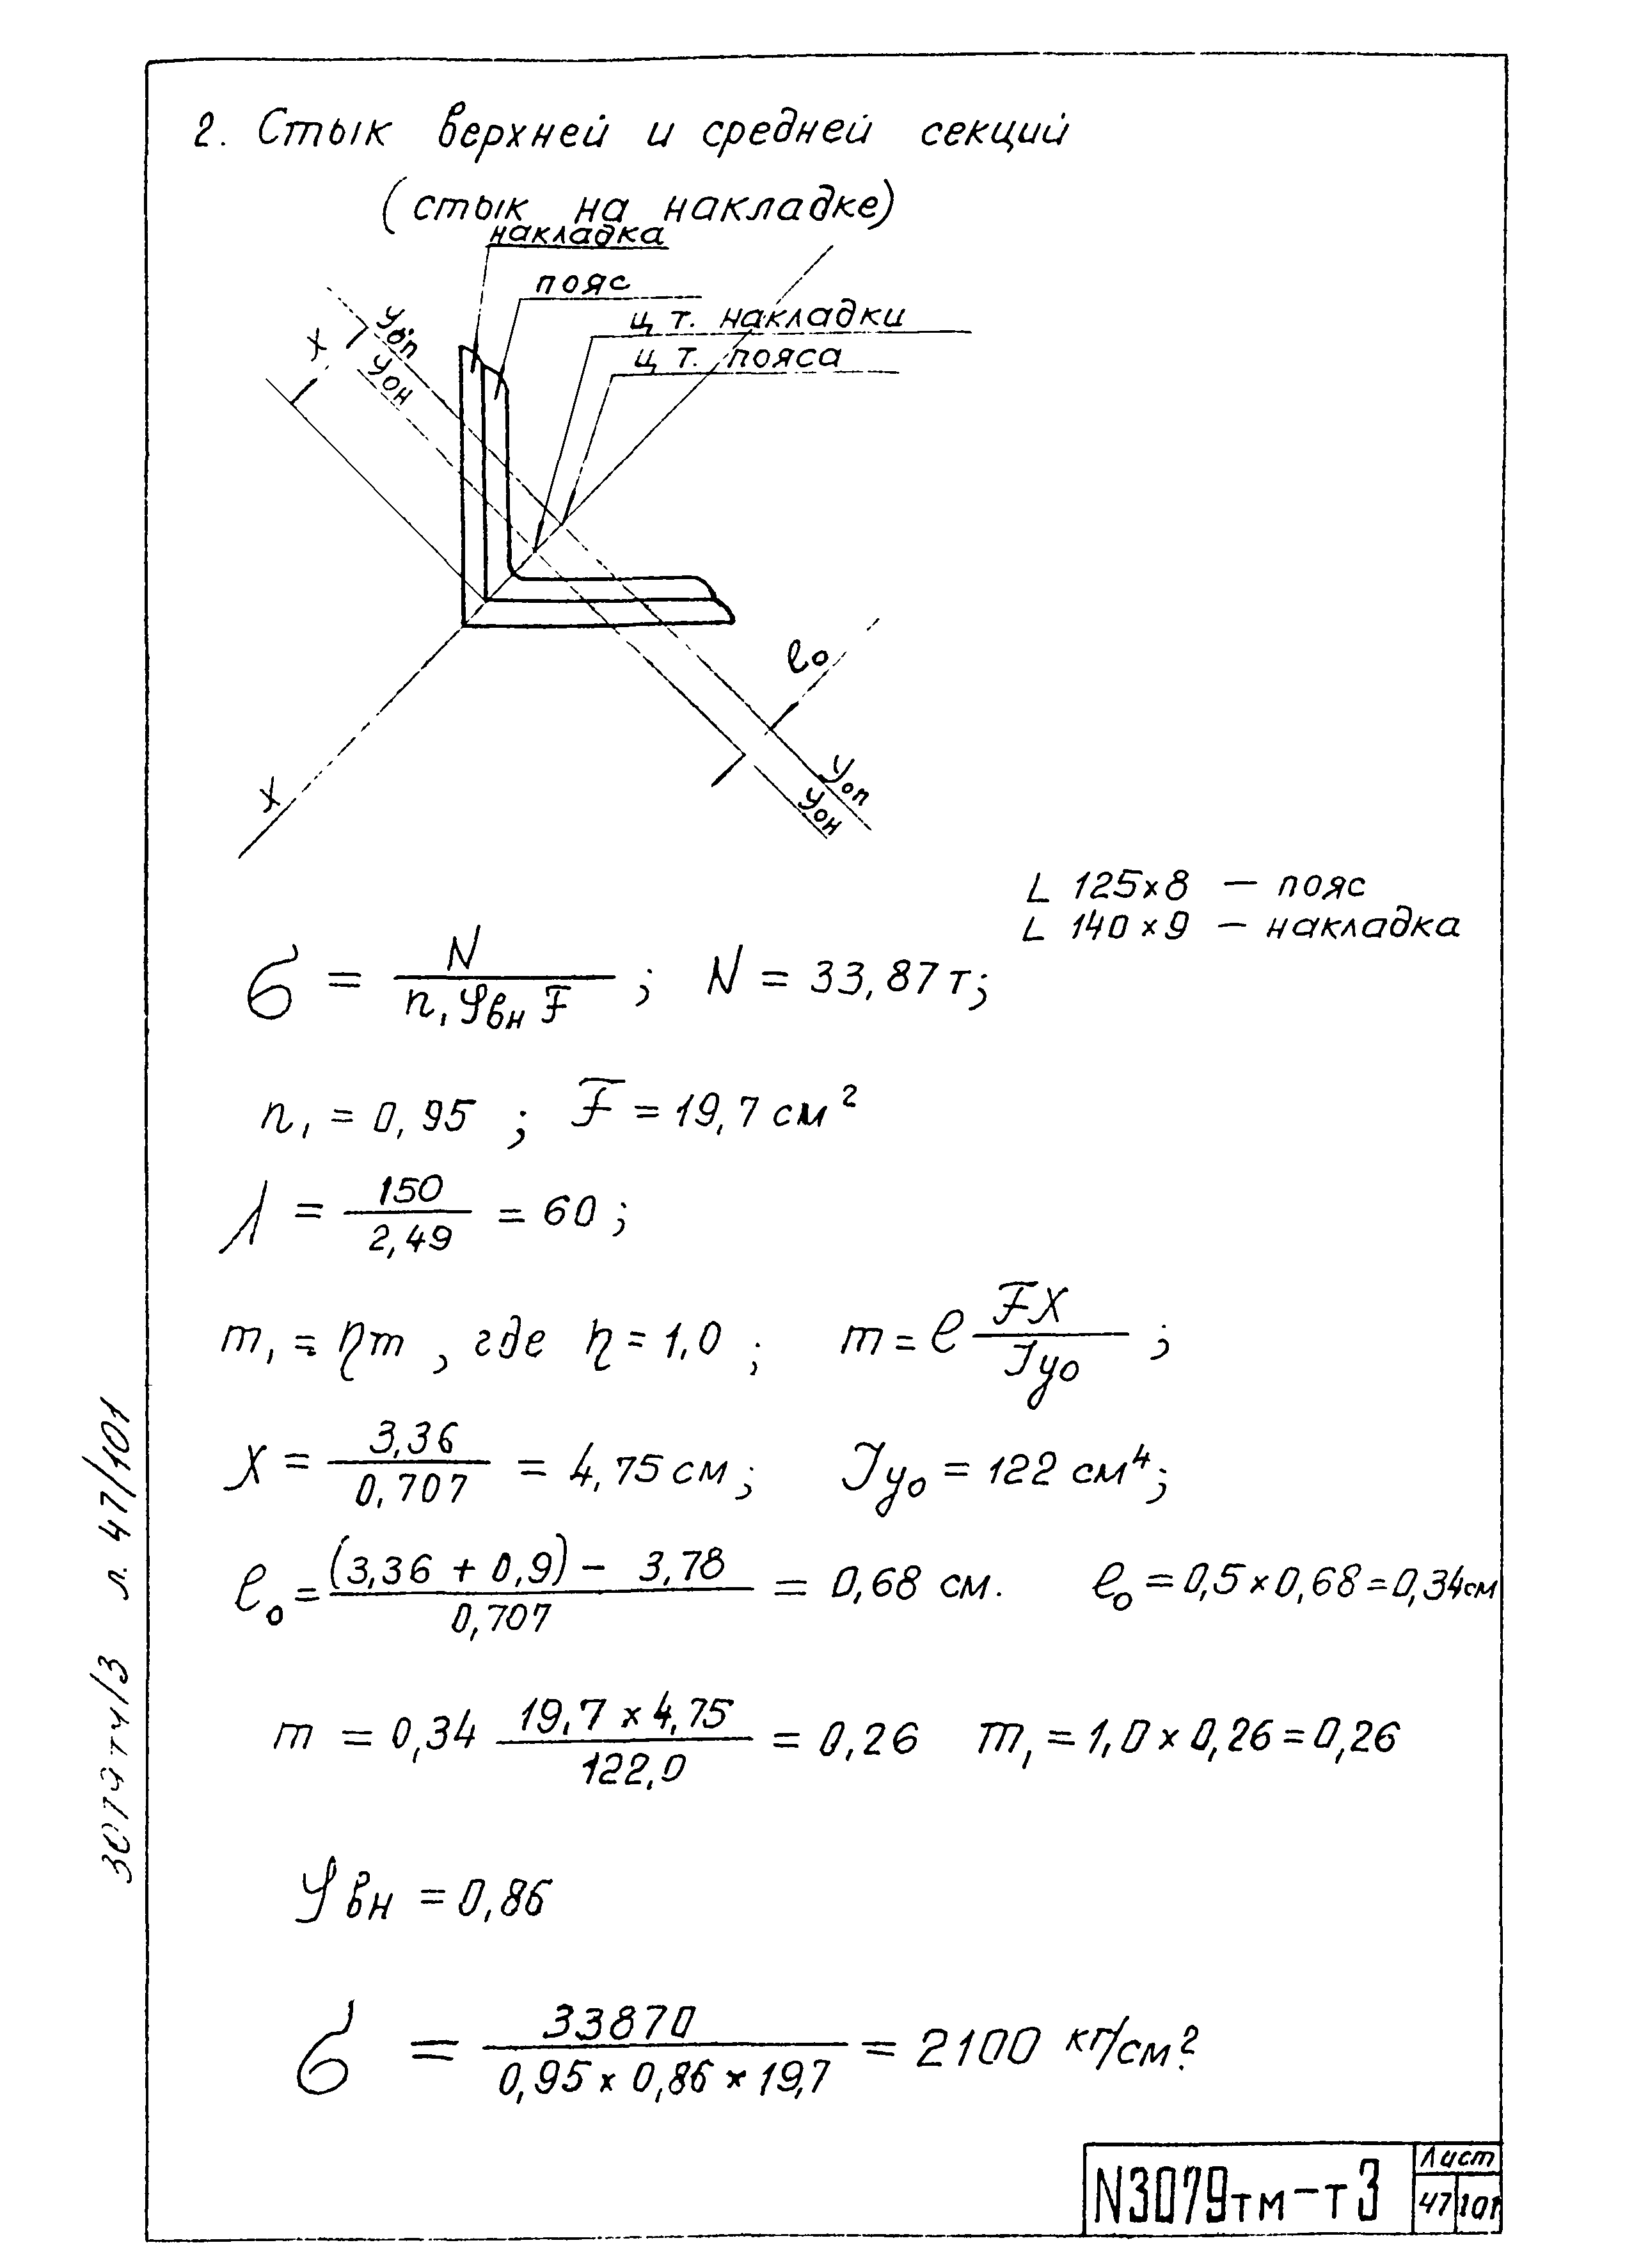 2. Стык верхней и средней секций
(стык на накладке)
накладка
пояс
ц.т. накладки
ц.т. пояса
x
yоп
yон
x
e₀
yоп
yон
L 125×8 — пояс
L 140×9 — накладка
σ = N / (n₁ φвн F) ; N = 33,87 т;
n₁ = 0,95 ; F = 19,7 см²
λ = 150 / 2,49 = 60 ;
m₁ = ηm , где η = 1,0 ; m = e FX / Jy₀ ;
X = 3,36 / 0,707 = 4,75 см ; Jy₀ = 122 см⁴;
e₀ = (3,36 + 0,9) - 3,78 / 0,707 = 0,68 см. e₀ = 0,5 × 0,68 = 0,34 см
m = 0,34 19,7 × 4,75 / 122,0 = 0,26 m₁ = 1,0 × 0,26 = 0,26
φвн = 0,86
σ = 33870 / 0,95 × 0,86 × 19,7 = 2100 кг/см².
3079тм/3 л. 47/101
N3079тм-т3
Лист
47 101